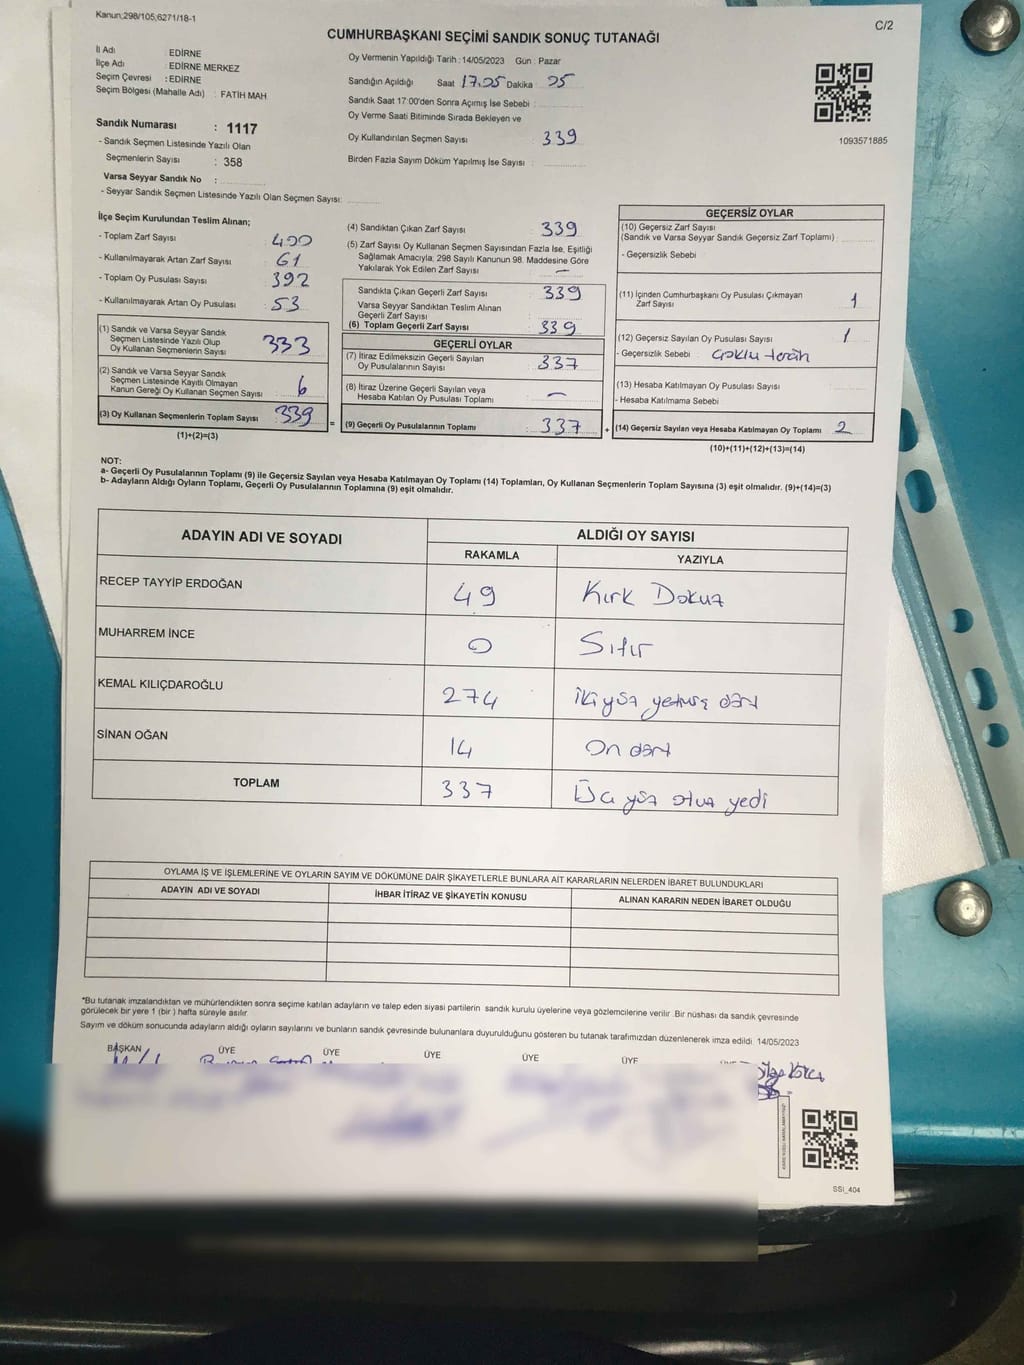 Kanun;298/105;6271/18-1
C/2
CUMHURBAŞKANI SEÇİMİ SANDIK SONUÇ TUTANAĞI
İl Adı : EDİRNE
İlçe Adı : EDİRNE MERKEZ
Seçim Çevresi : EDİRNE
Seçim Bölgesi (Mahalle Adı) : FATİH MAH
Sandık Numarası : 1117
- Sandık Seçmen Listesinde Yazılı Olan
Seçmenlerin Sayısı : 358
Varsa Seyyar Sandık No :
- Seyyar Sandık Seçmen Listesinde Yazılı Olan Seçmen Sayısı:
Oy Vermenin Yapıldığı Tarih : 14/05/2023 Gün : Pazar
Sandığın Açıldığı Saat 17.25 Dakika 25
Sandık Saat 17:00'den Sonra Açımış İse Sebebi :
Oy Verme Saati Bitiminde Sırada Bekleyen ve
Oy Kullandırılan Seçmen Sayısı : 339
Birden Fazla Sayım Döküm Yapılmış İse Sayısı :
1093571885
İlçe Seçim Kurulundan Teslim Alınan;
- Toplam Zarf Sayısı : 400
- Kullanılmayarak Artan Zarf Sayısı : 61
- Toplam Oy Pusulası Sayısı : 392
- Kullanılmayarak Artan Oy Pusulası : 53
(1) Sandık ve Varsa Seyyar Sandık
Seçmen Listesinde Yazılı Olup
Oy Kullanan Seçmenlerin Sayısı : 333
(2) Sandık ve Varsa Seyyar Sandık
Seçmen Listesinde Kayıtlı Olmayan
Kanun Gereği Oy Kullanan Seçmen Sayısı : 6
(3) Oy Kullanan Seçmenlerin Toplam Sayısı : 339
(1)+(2)=(3)
=
(4) Sandıktan Çıkan Zarf Sayısı : 339
(5) Zarf Sayısı Oy Kullanan Seçmen Sayısından Fazla İse, Eşitliği
Sağlamak Amacıyla, 298 Sayılı Kanunun 98. Maddesine Göre
Yakılarak Yok Edilen Zarf Sayısı : —
Sandıkta Çıkan Geçerli Zarf Sayısı : 339
Varsa Seyyar Sandıktan Teslim Alınan
Geçerli Zarf Sayısı :
(6) Toplam Geçerli Zarf Sayısı : 339
GEÇERLİ OYLAR
(7) İtiraz Edilmeksizin Geçerli Sayılan
Oy Pusulalarının Sayısı : 337
(8) İtiraz Üzerine Geçerli Sayılan veya
Hesaba Katılan Oy Pusulası Toplamı : —
(9) Geçerli Oy Pusulalarının Toplamı : 337
+
GEÇERSİZ OYLAR
(10) Geçersiz Zarf Sayısı
(Sandık ve Varsa Seyyar Sandık Geçersiz Zarf Toplamı) :
- Geçersizlik Sebebi :
(11) İçinden Cumhurbaşkanı Oy Pusulası Çıkmayan
Zarf Sayısı : 1
(12) Geçersiz Sayılan Oy Pusulası Sayısı : 1
- Geçersizlik Sebebi : Çoklu tercih
(13) Hesaba Katılmayan Oy Pusulası Sayısı :
- Hesaba Katılmama Sebebi :
(14) Geçersiz Sayılan veya Hesaba Katılmayan Oy Toplamı : 2
(10)+(11)+(12)+(13)=(14)
NOT:
a- Geçerli Oy Pusulalarının Toplamı (9) ile Geçersiz Sayılan veya Hesaba Katılmayan Oy Toplamı (14) Toplamları, Oy Kullanan Seçmenlerin Toplam Sayısına (3) eşit olmalıdır. (9)+(14)=(3)
b- Adayların Aldığı Oyların Toplamı, Geçerli Oy Pusulalarının Toplamına (9) eşit olmalıdır.
ADAYIN ADI VE SOYADI
ALDIĞI OY SAYISI
RAKAMLA YAZIYLA
RECEP TAYYİP ERDOĞAN 49 Kırk Dokuz
MUHARREM İNCE 0 Sıfır
KEMAL KILIÇDAROĞLU 274 İkiyüz yetmiş dört
SİNAN OĞAN 14 On dört
TOPLAM 337 Üç yüz otuz yedi
OYLAMA İŞ VE İŞLEMLERİNE VE OYLARIN SAYIM VE DÖKÜMÜNE DAİR ŞİKAYETLERLE BUNLARA AİT KARARLARIN NELERDEN İBARET BULUNDUKLARI
ADAYIN ADI VE SOYADI İHBAR İTİRAZ VE ŞİKAYETİN KONUSU ALINAN KARARIN NEDEN İBARET OLDUĞU
*Bu tutanak imzalandıktan ve mühürlendikten sonra seçime katılan adayların ve talep eden siyasi partilerin sandık kurulu üyelerine veya gözlemcilerine verilir. Bir nüshası da sandık çevresinde
görülecek bir yere 1 (bir) hafta süreyle asılır.
Sayım ve döküm sonucunda adayların aldığı oyların sayılarını ve bunların sandık çevresinde bulunanlara duyurulduğunu gösteren bu tutanak tarafımızdan düzenlenerek imza edildi. 14/05/2023
BAŞKAN ÜYE ÜYE ÜYE ÜYE ÜYE
SSI_404